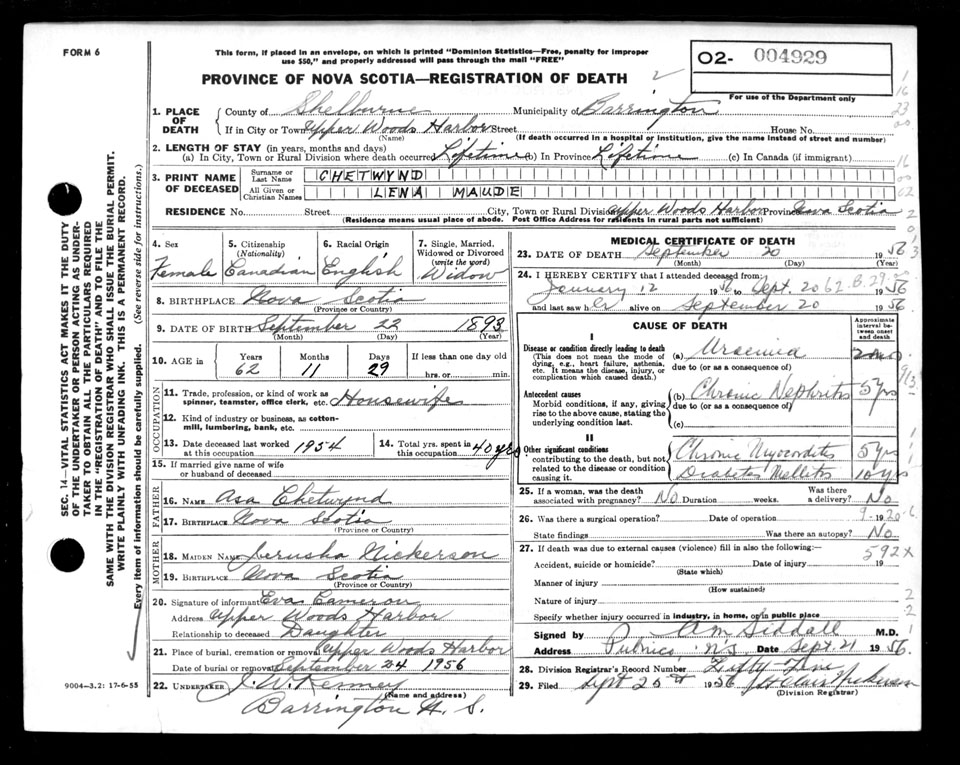 FORM 6
This form, if placed in an envelope, on which is printed "Dominion Statistics—Free, penalty for improper
use $50," and properly addressed will pass through the mail "FREE"
PROVINCE OF NOVA SCOTIA—REGISTRATION OF DEATH
O2- 004929
For use of the Department only
1. PLACE OF DEATH
County of Shelburne Municipality of Barrington
If in City or Town Upper Woods Harbor Street House No.
(Name) (If death occurred in a hospital or institution, give the name instead of street and number)
2. LENGTH OF STAY (in years, months and days)
(a) In City, Town or Rural Division where death occurred Lifetime (b) In Province Lifetime (c) In Canada (if immigrant)
3. PRINT NAME OF DECEASED
Surname or Last Name CHETWYND
All Given or Christian Names LENA MAUDE
RESIDENCE No. Street City, Town or Rural Division Upper Woods Harbor Province Nova Scotia
(Residence means usual place of abode. Post Office Address for residents in rural parts not sufficient)
4. Sex
Female
5. Citizenship
(Nationality)
Canadian
6. Racial Origin
English
7. Single, Married, Widowed or Divorced
(write the word)
Widow
8. BIRTHPLACE Nova Scotia
(Province or Country)
9. DATE OF BIRTH September 22 1893
(Month) (Day) (Year)
10. AGE in
Years Months Days If less than one day old
62 11 29 hrs. or min.
OCCUPATION
11. Trade, profession, or kind of work as
spinner, teamster, office clerk, etc. Housewife
12. Kind of industry or business, as cotton-
mill, lumbering, bank, etc.
13. Date deceased last worked
at this occupation 1954
14. Total yrs. spent in
this occupation 40 yrs
15. If married give name of wife
or husband of deceased
FATHER
16. NAME Asa Chetwynd
17. BIRTHPLACE Nova Scotia
(Province or Country)
MOTHER
18. MAIDEN NAME Jerusha Nickerson
19. BIRTHPLACE Nova Scotia
(Province or Country)
20. Signature of informant Eva Cameron
Address Upper Woods Harbor
Relationship to deceased Daughter
21. Place of burial, cremation or removal Upper Woods Harbor
Date of burial or removal September 24 1956
22. UNDERTAKER J. W. Kenney
(Name and address)
Barrington N. S.
MEDICAL CERTIFICATE OF DEATH
23. DATE OF DEATH September 20 1956
(Month) (Day) (Year)
24. I HEREBY CERTIFY that I attended deceased from:
January 12 1956 to Sept. 20 1956
and last saw her alive on September 20 1956
CAUSE OF DEATH
Approximate interval between onset and death
I
Disease or condition directly leading to death
(This does not mean the mode of
dying, e.g., heart failure, asthenia,
etc. It means the disease, injury, or
complication which caused death.)
(a) Uraemia
due to (or as a consequence of)
Antecedent causes
Morbid conditions, if any, giving
rise to the above cause, stating the
underlying condition last.
(b) Chronic Nephritis 5 yrs
due to (or as a consequence of)
(c)
II
Other significant conditions
contributing to the death, but not
related to the disease or condition
causing it.
Chronic Myocarditis 5 yrs
Diabetes Mellitus 10 yrs
25. If a woman, was the death
associated with pregnancy? No Duration weeks. Was there a delivery? No
26. Was there a surgical operation? Date of operation 19
State findings Was there an autopsy? No
27. If death was due to external causes (violence) fill in also the following:— 592X
Accident, suicide or homicide? Date of injury 19
(State which)
Manner of injury
(How sustained)
Nature of injury
Specify whether injury occurred in industry, in home, or in public place
Signed by A M Siddall M.D.
Address Pubnico N.S. Date Sept. 21 1956
28. Division Registrar's Record Number
29. Filed Sept 25th 1956
(Division Registrar)
9004-3.2: 17-6-55
SEC. 14—VITAL STATISTICS ACT MAKES IT THE DUTY
OF THE UNDERTAKER OR PERSON ACTING AS UNDER-
TAKER TO OBTAIN ALL THE PARTICULARS REQUIRED
IN THE "REGISTRATION OF DEATH" AND TO FILE THE
SAME WITH THE DIVISION REGISTRAR WHO SHALL ISSUE THE BURIAL PERMIT.
WRITE PLAINLY WITH UNFADING INK. THIS IS A PERMANENT RECORD.
Every item of information should be carefully supplied. (See reverse side for instructions.)